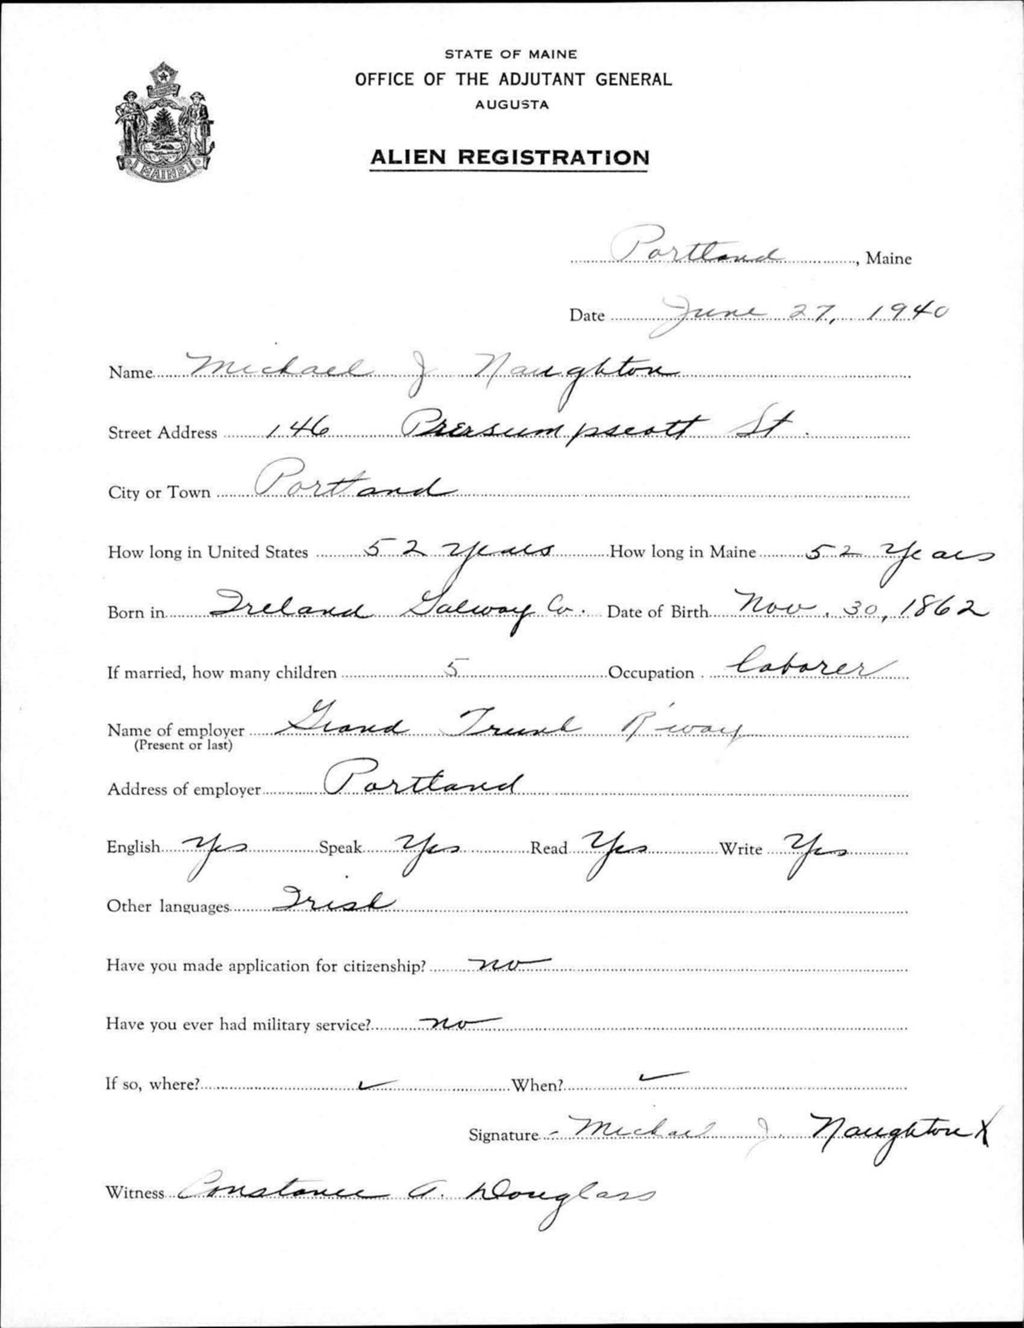 STATE OF MAINE
OFFICE OF THE ADJUTANT GENERAL
AUGUSTA
MAINE
ALIEN REGISTRATION
Portland, Maine
Date June 27, 1940
Name Michael J Naughton
Street Address 146 Presumpscott St.
City or Town Portland
How long in United States 52 Years How long in Maine 52 Years
Born in Ireland Galway Co. Date of Birth Nov. 30, 1862
If married, how many children 5 Occupation laborer
Name of employer Grand Trunk R'way
(Present or last)
Address of employer Portland
English Yes Speak Yes Read Yes Write Yes
Other languages Irish
Have you made application for citizenship? no
Have you ever had military service? no
If so, where? ✓ When? ✓
Signature - Michael J. Naughton X
Witness Constance A. Douglass